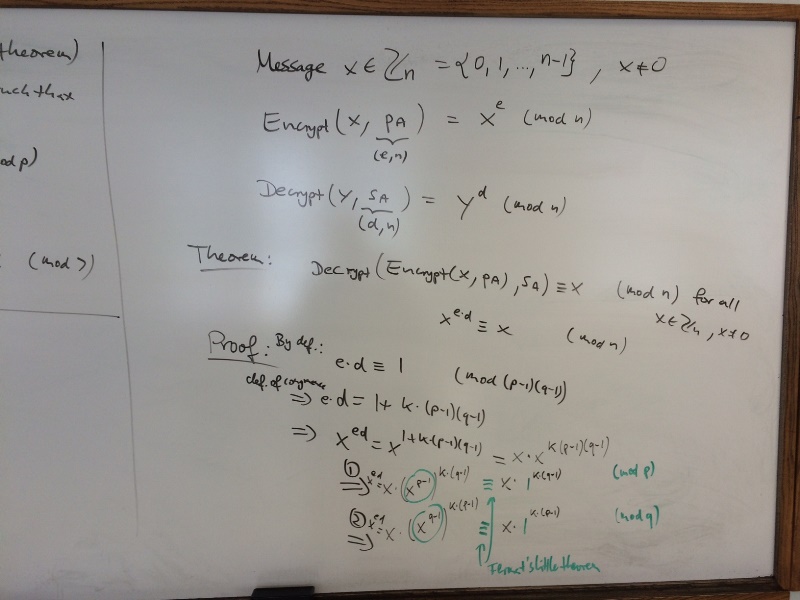 theorem)
such that
mod p)
(mod 7)
Message x ∈ ℤn = {0, 1, ..., n-1}, x ≠ 0
Encrypt(x, pA) = x^e (mod n)
(e, n)
Decrypt(y, sA) = y^d (mod n)
(d, n)
Theorem: Decrypt(Encrypt(x, pA), sA) ≡ x (mod n) for all
x ∈ ℤn, x ≠ 0
x^(e·d) ≡ x (mod n)
Proof: By def.: e·d ≡ 1 (mod (p-1)(q-1))
def. of congruence
⇒ e·d = 1 + k·(p-1)(q-1)
⇒ x^(ed) = x^(1+k·(p-1)(q-1)) = x·x^(k(p-1)(q-1))
① ⇒ x^(ed) = x·(x^(p-1))^(k·(q-1)) ≡ x·1^(k·(q-1)) (mod p)
② ⇒ x^(ed) = x·(x^(q-1))^(k·(p-1)) ≡ x·1^(k·(p-1)) (mod q)
Fermat's little theorem